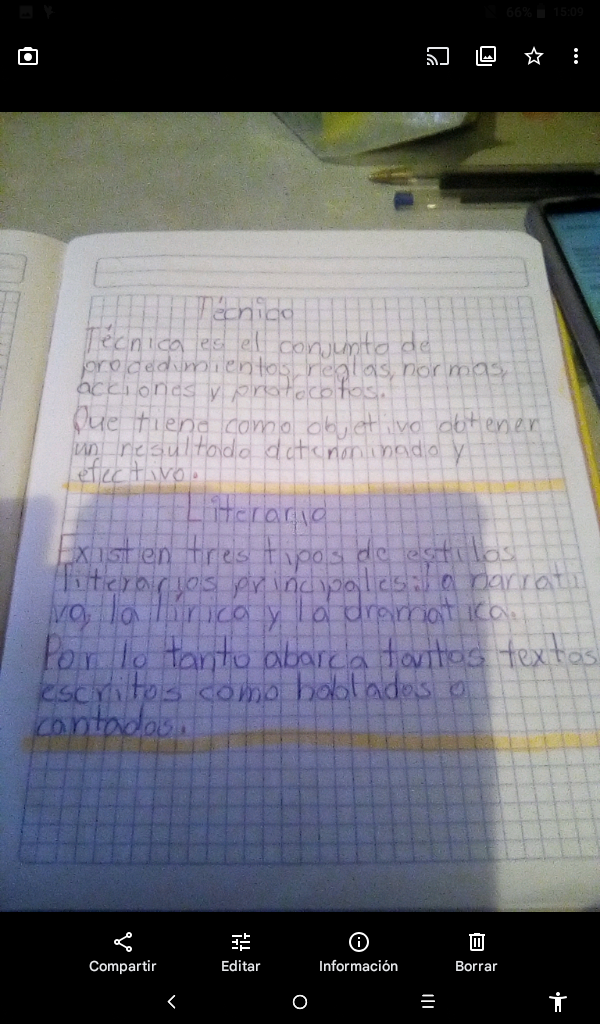 66% 15:09
Técnico
Técnica es el conjunto de
procedimientos, reglas, normas,
acciones y protocolos.
Que tiene como objetivo obtener
un resultado
efectivo.
Literario
Existen tres tipos de estilos
literarios principales: la narrati
va, la lírica y la dramatica.
Por lo tanto abarca tantos textos
escritos como hablados o
cantados.
Compartir Editar Información Borrar